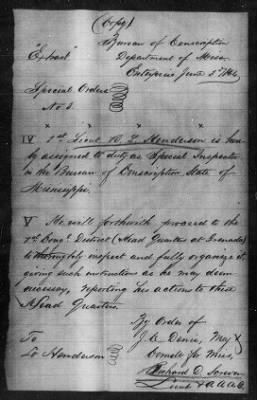 (Copy)
Bureau of Conscription
"Extract" Department of Miss.
Enterprise June 5th 1864
Special Orders
No 3.
x x x x
IV 1st Lieut R. L. Henderson is here
by assigned to duty as Special Inspector
in the Bureau of Conscription State of
Mississippi.
V He will forthwith proceed to the
Congl District (Head Quarters at Grenada)
to thoroughly inspect and fully organize it
giving such instructions as he may deem
necessary, reporting his actions to these
Head Quarters.
By Order of
To J. C. Denis, Maj &
Lt Henderson Comdt for Miss.
Richard D.
Lieut & A.A.A.G.